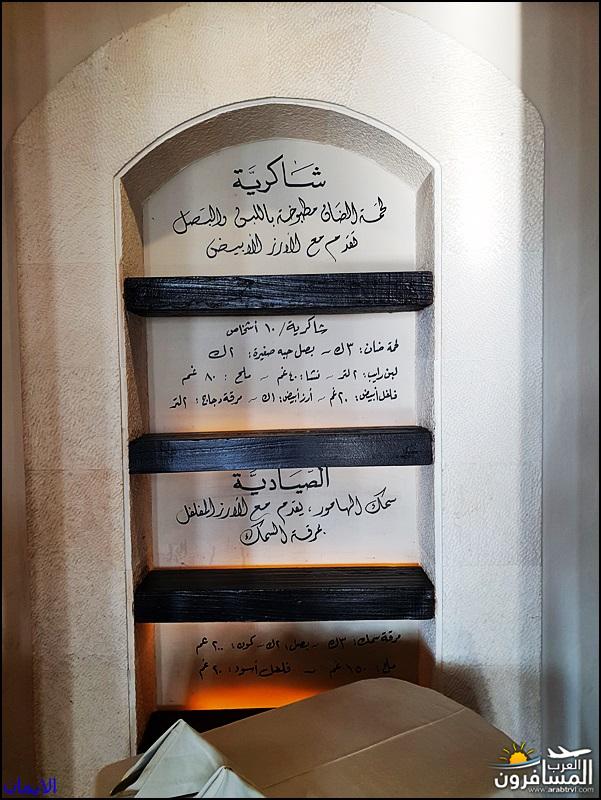 شاكريَّة
لحمة الضان مطبوخة باللبن والبَصل
تقدم مع الأرز الأبيض
شاكرية/ ١٠ أشخاص
لحمة ضان: ٣ك - بصل حبه صغيرة: ٢ك
لبن رايب: ٢لتر - نشا: ٤٠غم - ملح: ٨٠ غم
فلفل أبيض: ٢٠غم - أرز أبيض: ١ك - مرقة دجاج: ٢لتر
الصَّياديَّة
سمك الهامور، يقدم مع الأرز المفلفل
بمرقة السمك
مرقة سمك: ٣ك - بصل: ٢ك - كمون: ٢٠٠ غم
ملح: ١٥٠غم - فلفل أسود: ٢٠غم
العرب
المسافرون
www.arabtrvl.com